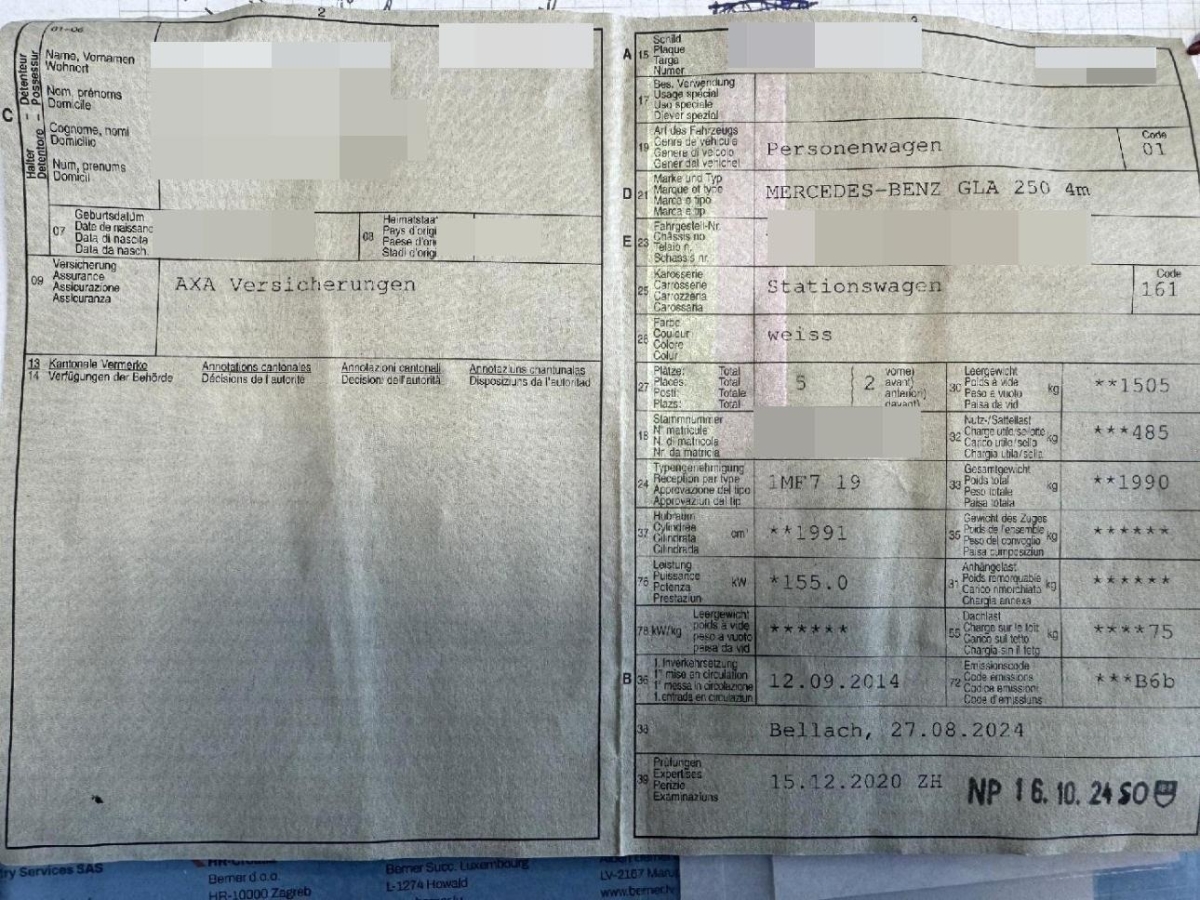 2
01-06
Halter – Detenteur
Detentore – Possessur
C
Name, Vornamen
Wohnort
Nom, prénoms
Domicile
Cognome, nomi
Domicilio
Num, prenums
Domicil
07
Geburtsdatum
Date de naissanc
Data di nascita
Data da nasch.
08
Heimatstaa
Pays d'origi
Paese d'ori
Stadi d'orig
09
Versicherung
Assurance
Assicurazione
Assicuranza
AXA Versicherungen
13 Kantonale Vermerke Annotations cantonales Annotazioni cantonali Annotaziuns chantunalas
14 Verfügungen der Behörde Décisions de l'autorité Decisioni dell'autorità Disposiziuns da l'autoritad
A 15
Schild
Plaque
Targa
Numer
17
Bes. Verwendung
Usage spécial
Uso speciale
Diever spezial
19
Art des Fahrzeugs
Genre de véhicule
Genere di veicolo
Gener dal vehichel
Personenwagen
Code
01
D 21
Marke und Typ
Marque et type
Marca e tipo
Marca e tip
MERCEDES-BENZ GLA 250 4m
E 23
Fahrgestell-Nr.
Châssis no
Telaio n.
Schassis nr.
25
Karosserie
Carrosserie
Carrozzeria
Carossaria
Stationswagen
Code
161
26
Farbe
Couleur
Colore
Colur
weiss
27
Plätze: Total
Places: Total
Posti: Totale
Plazs: Total
5
2
vorne)
avant)
anteriori)
davant)
30
Leergewicht
Poids à vide
Peso a vuoto
Paisa da vid
kg
**1505
18
Stammnummer
N° matricule
N. di matricola
Nr. da matricla
32
Nutz-/Sattellast
Charge utile/sellette
Carico utile/sella
Chargia utila/sella
kg
***485
24
Typengenehmigung
Réception par type
Approvazione del tipo
Approvaziun dal tip
1MF7 19
33
Gesamtgewicht
Poids total
Peso totale
Paisa totala
kg
**1990
37
Hubraum
Cylindrée
Cilindrata
Cilindrada
cm³
**1991
35
Gewicht des Zuges
Poids de l'ensemble
Peso del convoglio
Paisa cumposiziun
kg
******
76
Leistung
Puissance
Potenza
Prestaziun
kW
*155.0
31
Anhängelast
Poids remorquable
Carico rimorchiato
Chargia annexa
kg
******
78 kW/kg
Leergewicht
poids à vide
peso a vuoto
paisa da vid
******
55
Dachlast
Charge sur le toit
Carico sul tetto
Chargia sin il tetg
kg
****75
B 36
1. Inverkehrsetzung
1re mise en circulation
1a messa in circolazione
1. entrada en circulaziun
12.09.2014
72
Emissionscode
Code émissions
Codice emissioni
Code d'emissiuns
***B6b
38
Bellach, 27.08.2024
39
Prüfungen
Expertises
Perizie
Examinaziuns
15.12.2020 ZH
NP 16.10.24 SO
ry Services SAS
Berner d.o.o.
HR-10000 Zagreb
Berner Succ. Luxembourg
L-1274 Howald
www.berner.lv